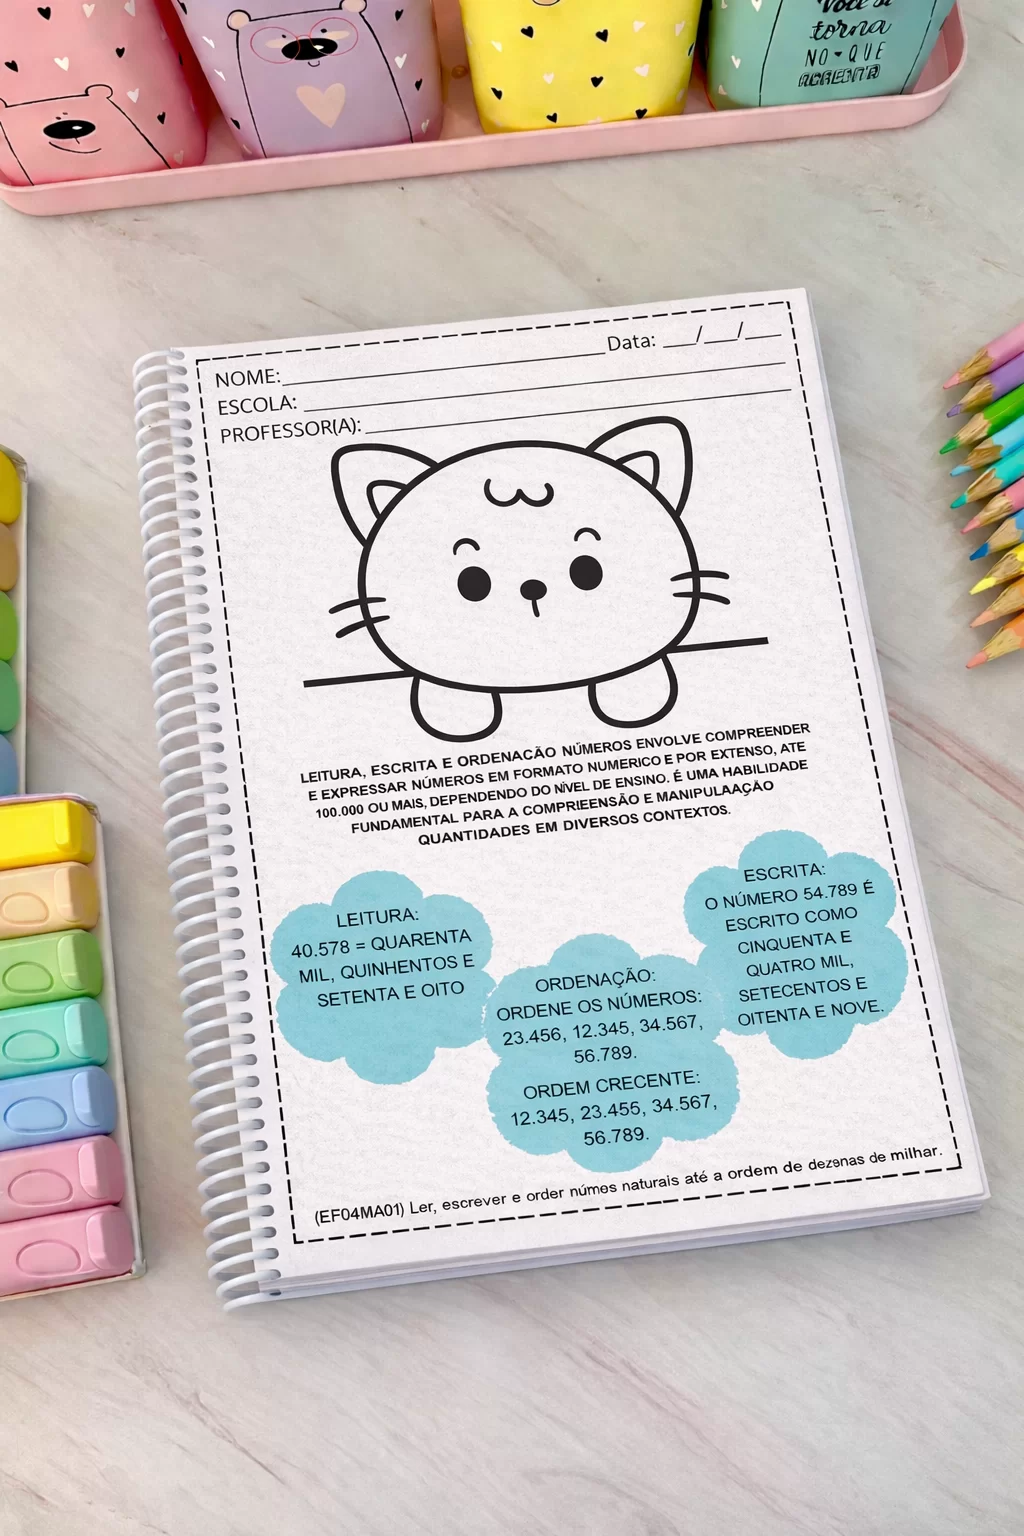 Você se
torna
NO QUE
ACREDITA
Data: ___/___/___
NOME:
ESCOLA:
PROFESSOR(A):
LEITURA, ESCRITA E ORDENACÃO NÚMEROS ENVOLVE COMPREENDER
E EXPRESSAR NÚMEROS EM FORMATO NUMERICO E POR EXTENSO, ATE
100.000 OU MAIS, DEPENDENDO DO NÍVEL DE ENSINO. É UMA HABILIDADE
FUNDAMENTAL PARA A COMPRIEENSÃO E MANIPULAAÇÃO
QUANTIDADES EM DIVERSOS CONTEXTOS.
LEITURA:
40.578 = QUARENTA
MIL, QUINHENTOS E
SETENTA E OITO
ORDENAÇÃO:
ORDENE OS NÚMEROS:
23.456, 12.345, 34.567,
56.789.
ORDEM CRECENTE:
12.345, 23.455, 34.567,
56.789.
ESCRITA:
O NÚMERO 54.789 É
ESCRITO COMO
CINQUENTA E
QUATRO MIL,
SETECENTOS E
OITENTA E NOVE.
(EF04MA01) Ler, escrever e order númes naturais até a ordem de dezenas de milhar.